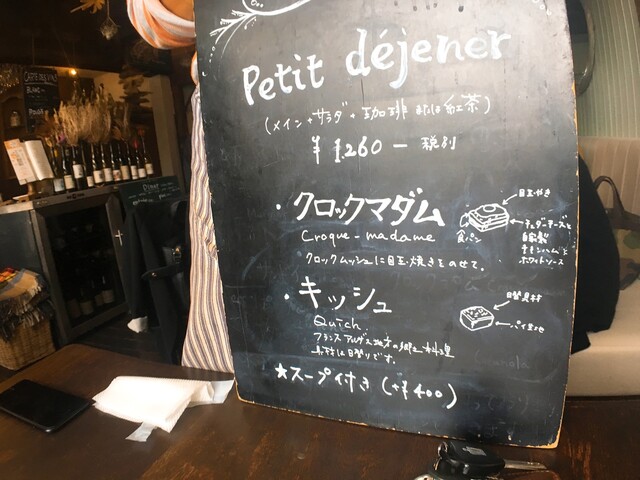 Petit déjener
(メイン+サラダ+珈琲 または 紅茶)
¥1.260— 税別
・クロックマダム
Croque-madame
クロックムッシュに目玉焼きをのせて。
目玉やき
食パン
チェダーチーズと
自家製
チキンハムと
ホワイトソース
・キッシュ
Quich
フランス アルザス地方の郷土料理
具材は日替りです。
日替具材
パイ生地
★スープ付き(+¥400)